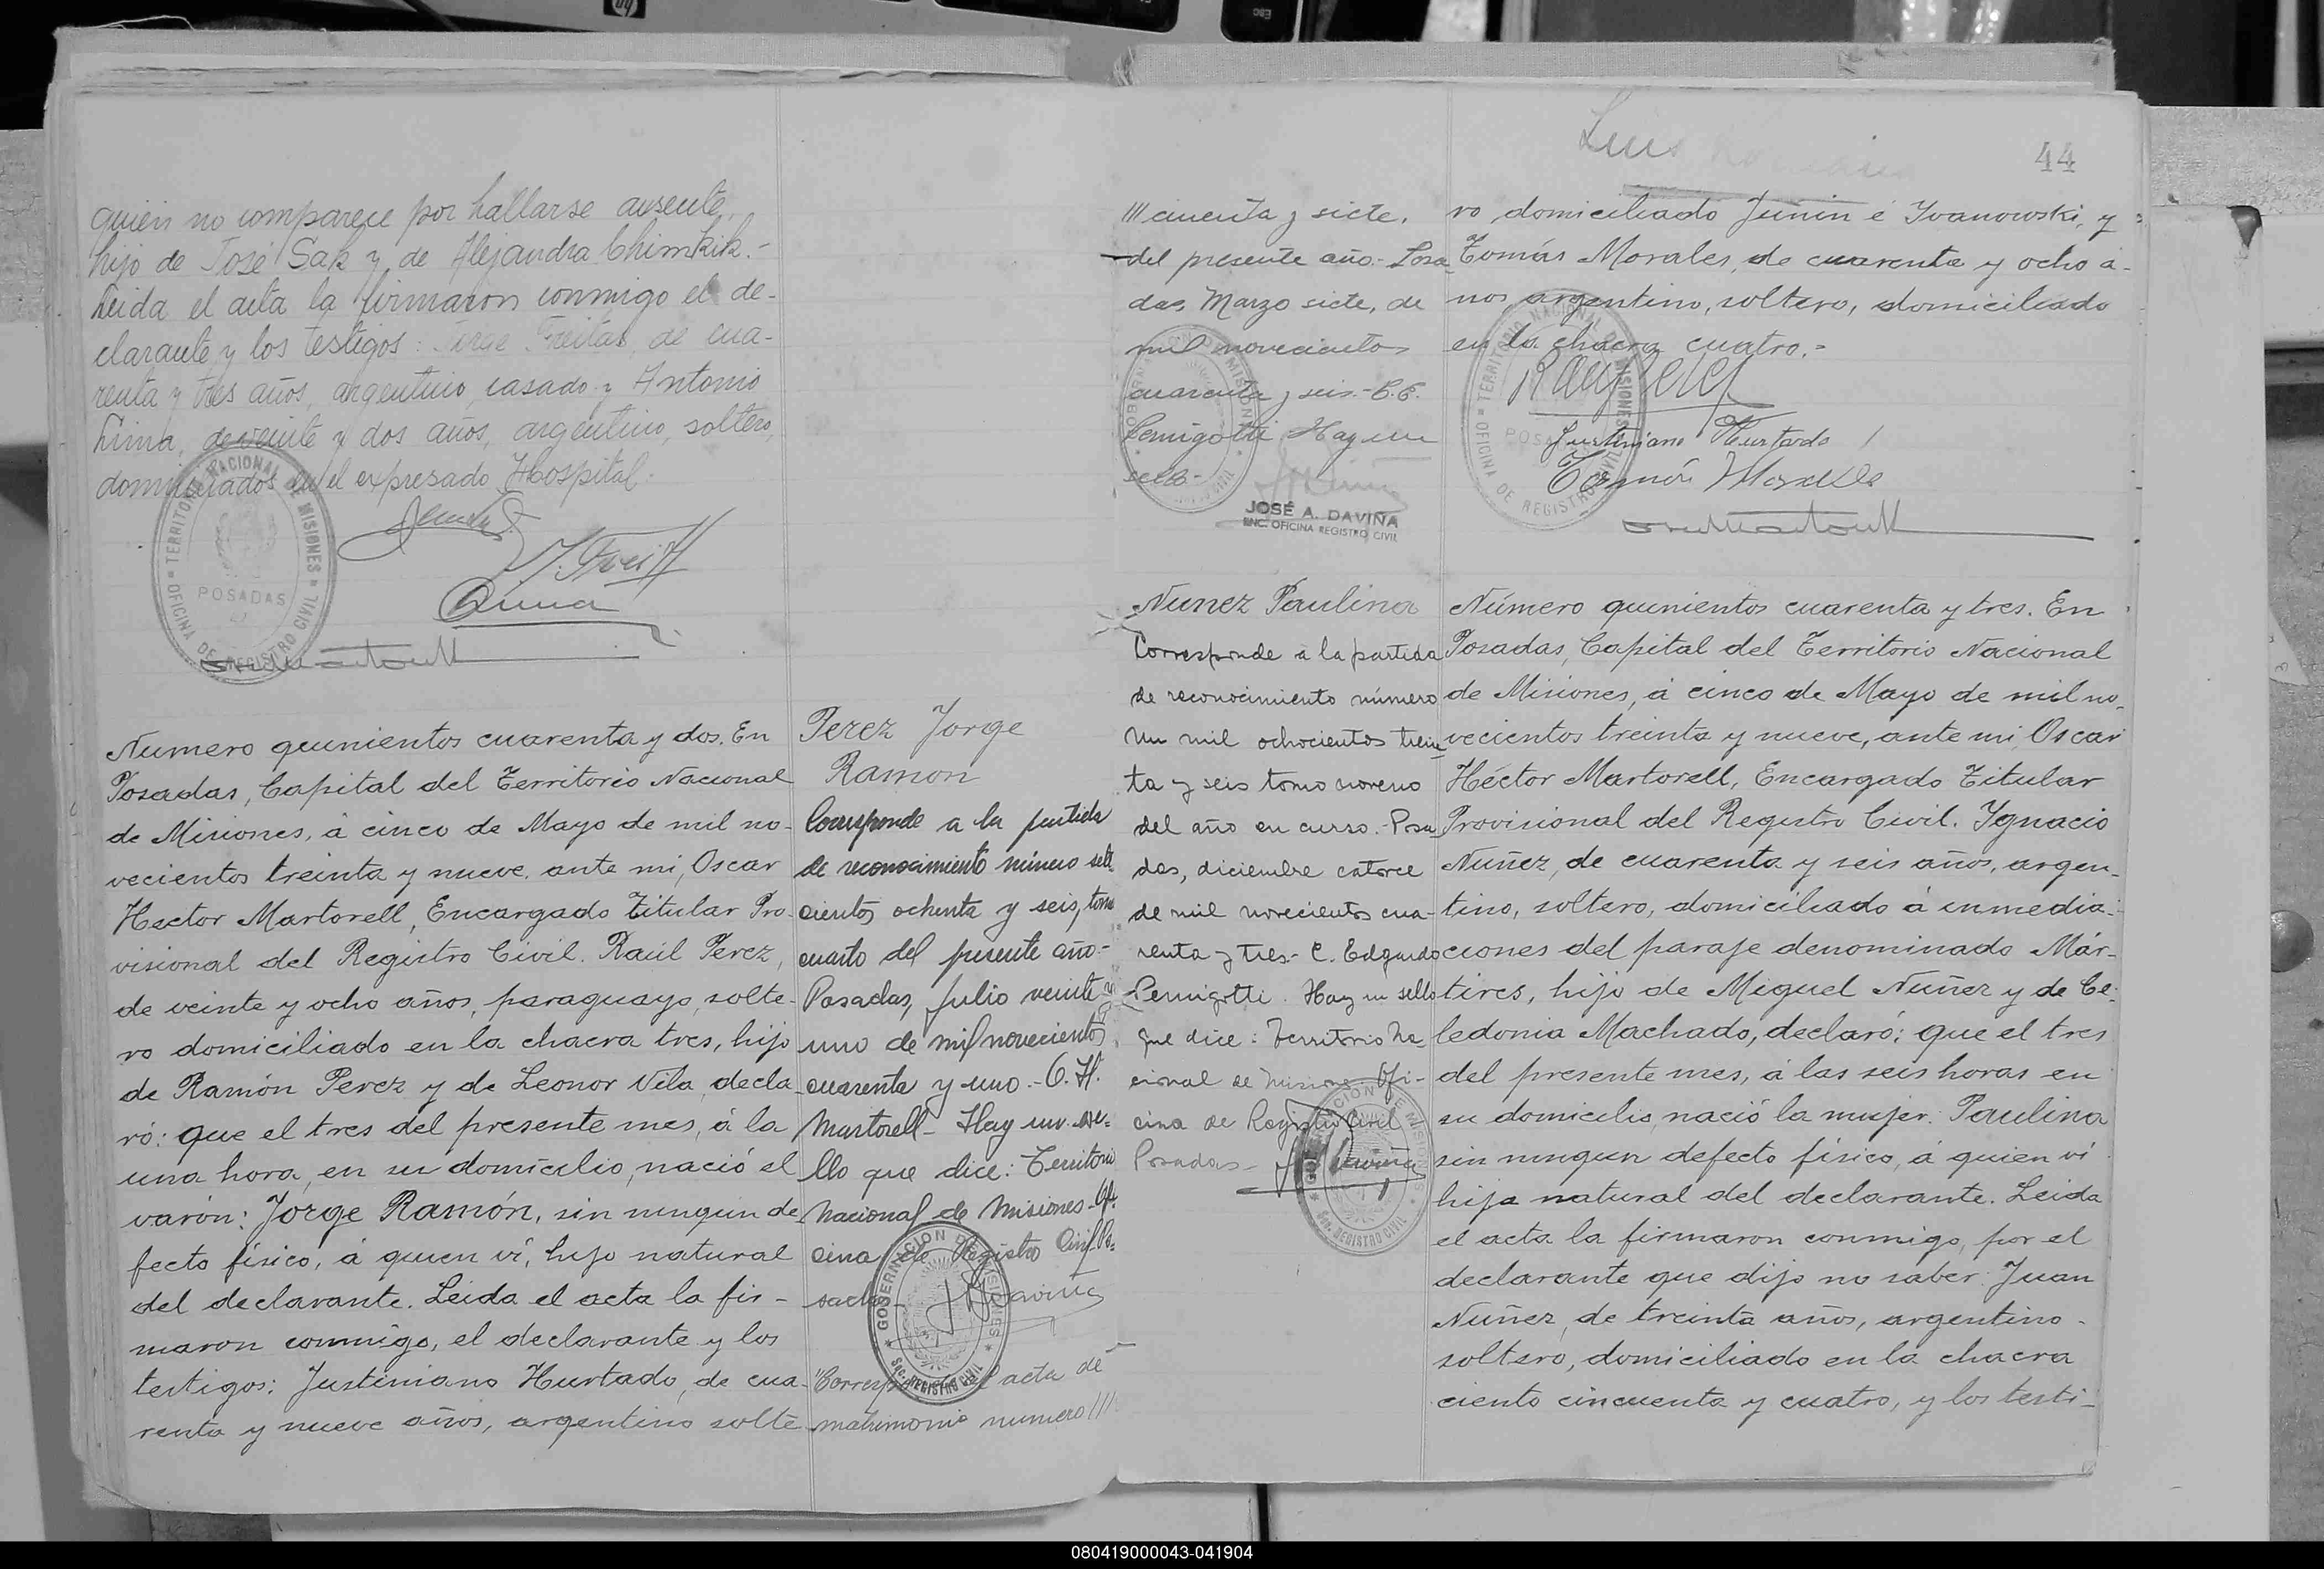 quien no comparece por hallarse ausente,
hijo de José Sak y de Alejandra Chimkik.-
Leida el acta la firmaron conmigo el de-
clarante y los testigos: Jorge Freitas, de cua-
renta y tres años, argentino, casado y Antonio
Lima, de veinte y dos años, argentino, soltero,
domiciliados en el expresado Hospital.
TERRITORIO NACIONAL DE MISIONES
OFICINA DE REGISTRO CIVIL
POSADAS
Numero quinientos cuarenta y dos. En
Posadas, Capital del Territorio Nacional
de Misiones, á cinco de Mayo de mil no-
vecientos treinta y nueve, ante mi, Oscar
Hector Martorell, Encargado Titular Pro-
visional del Registro Civil. Raúl Perez,
de veinte y ocho años, paraguayo, solte-
ro domiciliado en la chacra tres, hijo
de Ramón Perez y de Leonor Vila, decla
ró: que el tres del presente mes, á la
una hora, en su domicilio, nació el
varón: Jorge Ramón, sin ningun de
fecto físico, á quien ví, hijo natural
del declarante. Leida el acta la fir-
maron conmigo, el declarante y los
testigos: Justiniano Hurtado, de cua-
renta y nueve años, argentino solte
Perez Jorge
Ramon
Corresponde a la partida
de reconocimiento número sete
cientos ochenta y seis, tomo
cuarto del presente año.-
Posadas, julio veinte y
uno de mil novecientos
cuarenta y uno.- O. H.
Martorell- Hay un se-
llo que dice: Territorio
Nacional de Misiones-Ofi-
cina de Registro Civil-Po-
sadas-
GOBERNACION DE MISIONES
Sec. REGISTRO CIVIL
Corresponde al acta de
matrimonio numero ///
/// cincuenta y siete,
del presente año.- Posa-
das, Marzo siete, de
mil novecientos
cuarenta y seis.- C.E.
Pernigotti Hay un
sello-
JOSÉ A. DAVIÑA
ENC. OFICINA REGISTRO CIVIL
Nunez Paulina
Corresponde á la partida
de reconocimiento número
Un mil ochocientos trein-
ta y seis tomo noveno
del año en curso.- Posa-
das, diciembre catorce
de mil novecientos cua-
renta y tres.- C. Edgardo
Pernigotti. Hay un sello
que dice: Territorio Na-
cional de Misiones. Ofi-
cina de Registro Civil
Posadas-
GOBERNACION DE MISIONES
Sec. REGISTRO CIVIL
Luis
44
ro, domiciliado Junin é Ivanowski, y
Tomás Morales, de cuarenta y ocho á-
nos, argentino, soltero, domiciliado
en la chacra cuatro.-
TERRITORIO NACIONAL DE MISIONES
OFICINA DE REGISTRO CIVIL
POSADAS
Raul Perez
Justiniano Hurtado
Tomás Morales
Número quinientos cuarenta y tres. En
Posadas, Capital del Territorio Nacional
de Misiones, á cinco de Mayo de mil no-
vecientos treinta y nueve, ante mi, Oscar
Héctor Martorell, Encargado Titular
Provisional del Registro Civil. Ygnacio
Nuñez, de cuarenta y seis años, argen-
tino, soltero, domiciliado á inmedia-
ciones del paraje denominado Már-
tires, hijo de Miguel Nuñez y de Ce-
ledonia Machado, declaró: que el tres
del presente mes, á las seis horas en
su domicilio, nació la mujer: Paulina
sin ningun defecto físico, á quien ví
hija natural del declarante. Leida
el acta la firmaron conmigo, por el
declarante que dijo no saber: Juan
Nuñez, de treinta años, argentino-
soltero, domiciliado en la chacra
ciento cincuenta y cuatro, y los testi-
080419000043-041904